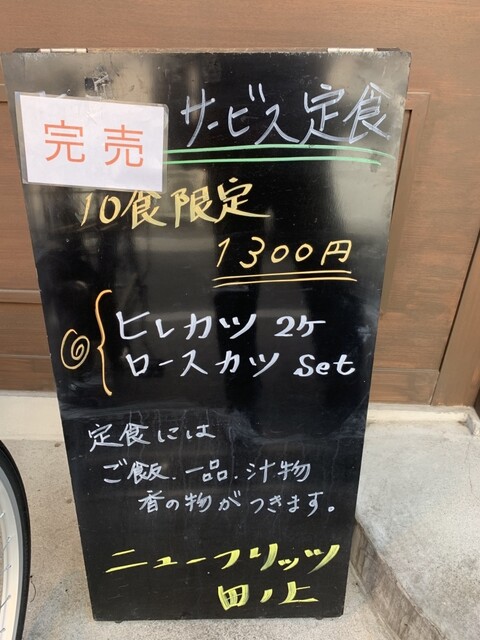 完売
サービス定食
10食限定
1300円
ヒレカツ 2ケ
ロースカツ Set
定食には
ご飯.一品.汁物
香の物がつきます。
ニューフリッツ
田ノ上